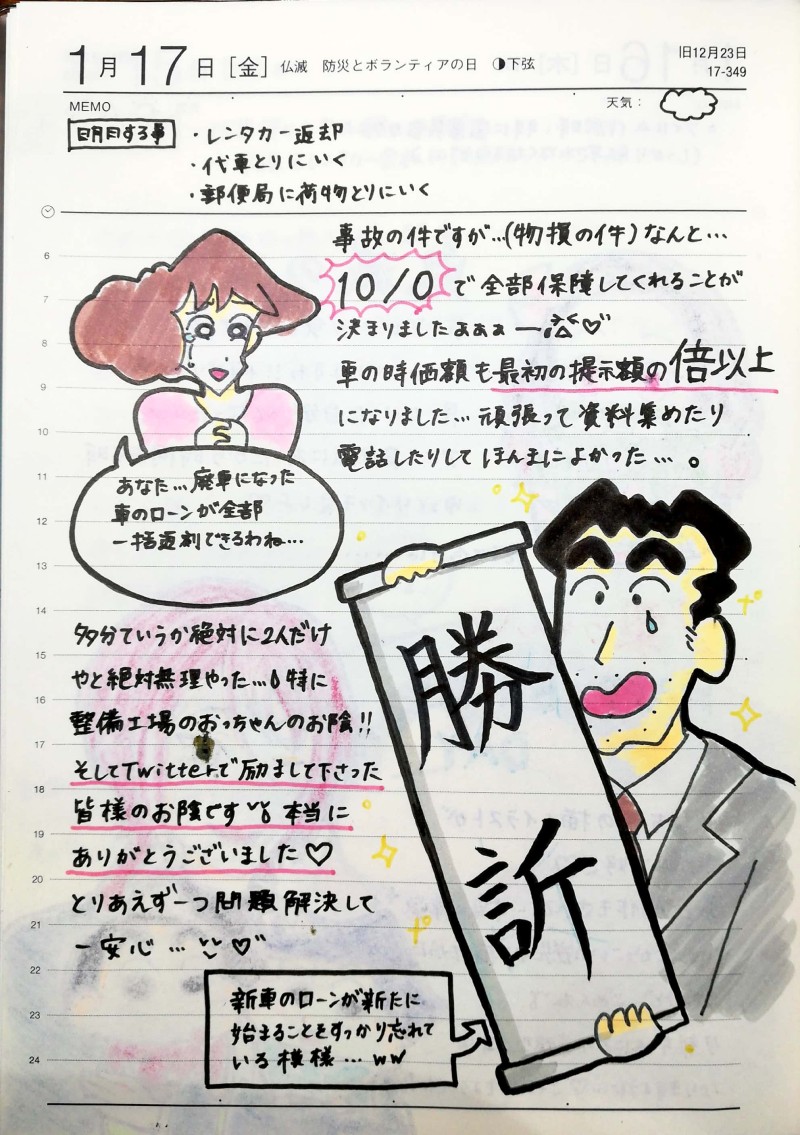 1月17日[金] 仏滅 防災とボランティアの日 ◑下弦
旧12月23日
17-349
MEMO
天気：
明日する事
・レンタカー返却
・代車とりにいく
・郵便局に荷物とりにいく
事故の件ですが…(物損の件)なんと…
10/0で全部保障してくれることが
決まりましたよぉぉー
車の時価額も最初の提示額の倍以上
になりました…頑張って資料集めたり
電話したりしてほんまによかった…。
あなた…廃車になった
車のローンが全部
一括返剤できるわね…
勝
訴
多分ていうか絶対に2人だけ
やと絶対無理やった…特に
整備工場のおっちゃんのお陰!!
そしてTwitterで励まして下さった
皆様のお陰です 本当に
ありがとうございました♡
とりあえず一つ問題解決して
一安心…♡
新車のローンが新たに
始まることをすっかり忘れて
いる模様…ww
6
7
8
9
10
11
12
13
14
15
16
17
18
19
20
21
22
23
24